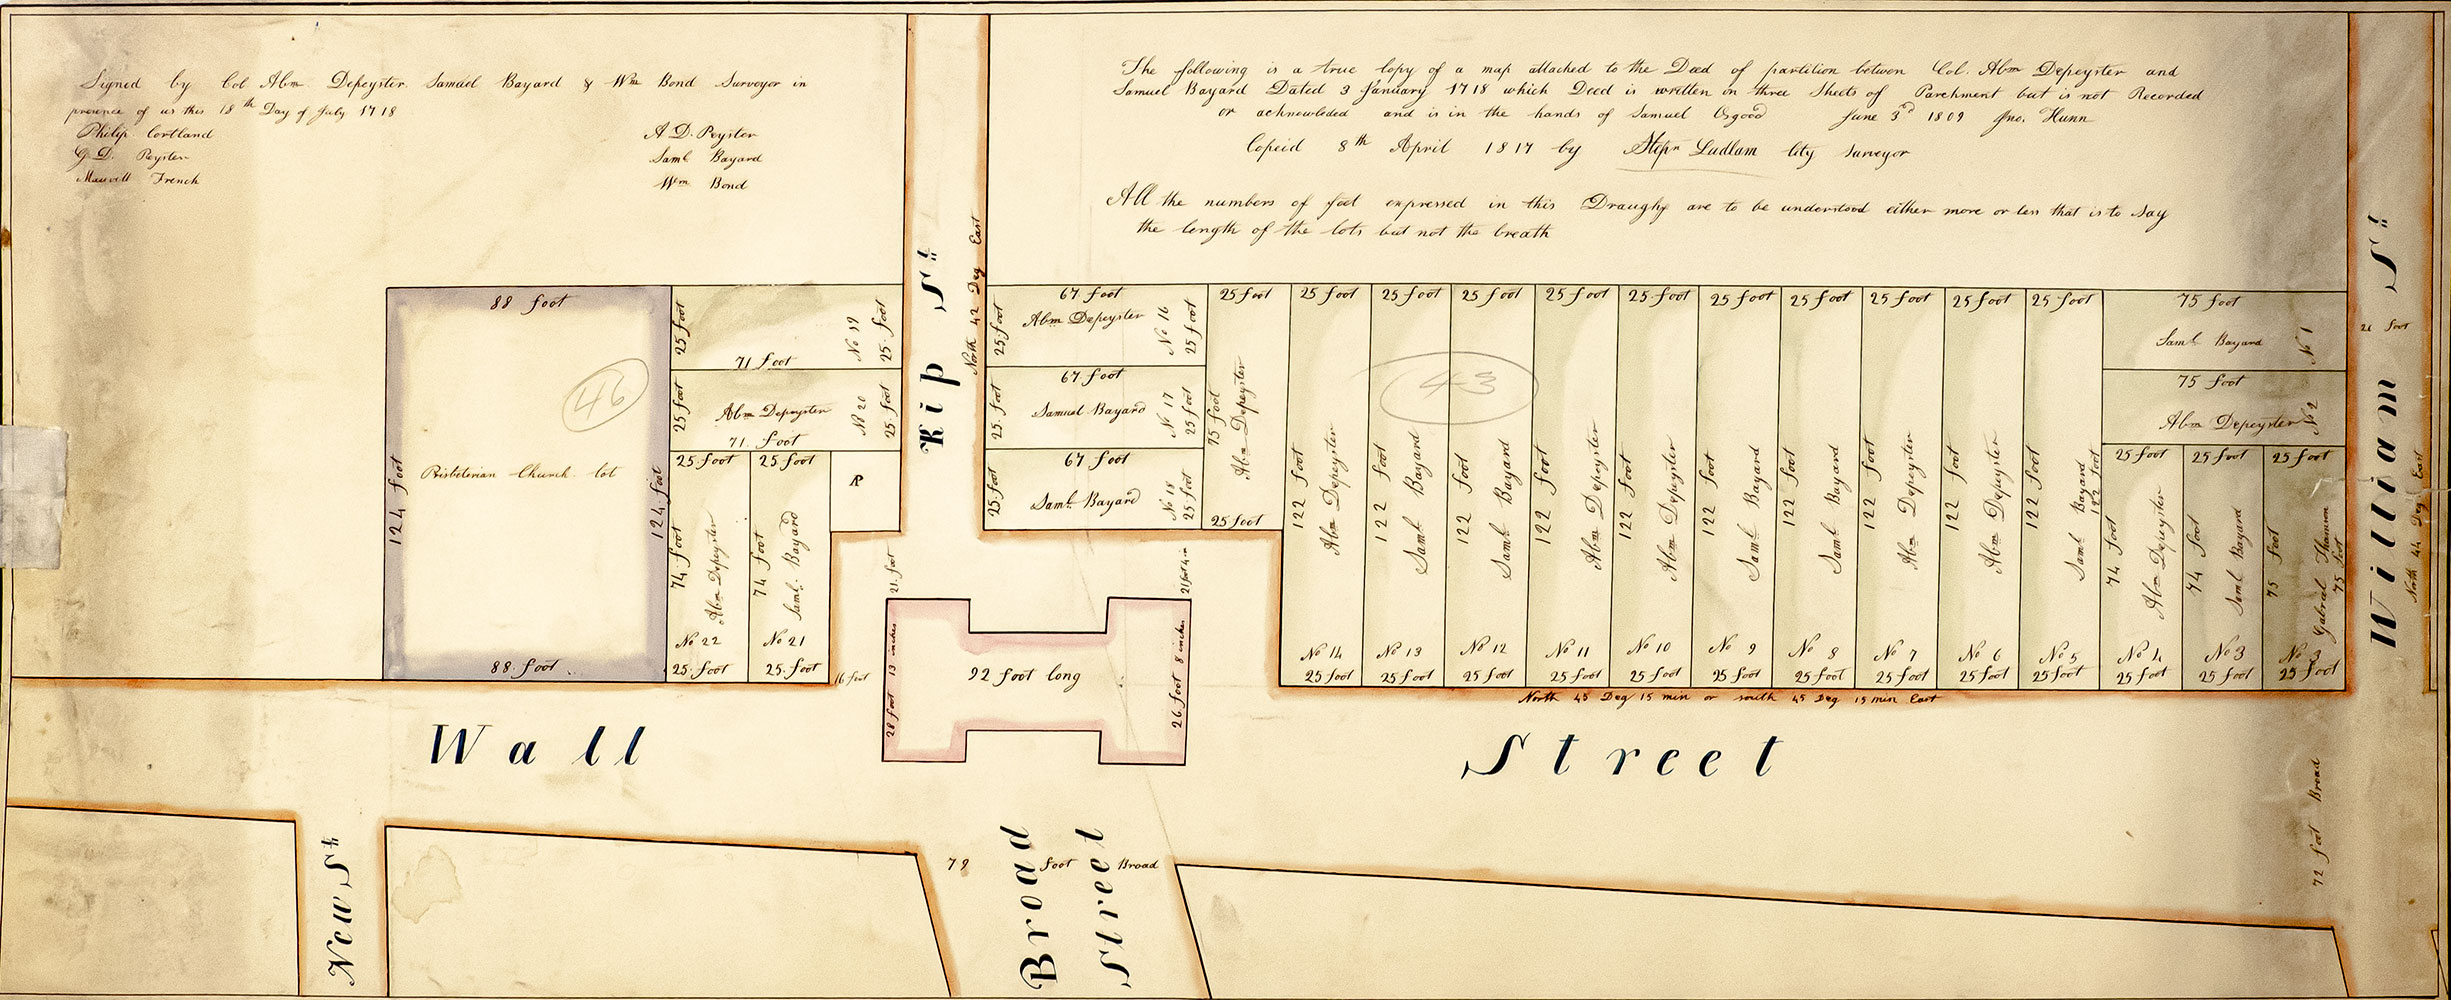 Signed by Col Abm Depeyster. Samuel Bayard & Wm Bond Surveyor in
presence of us this 18th Day of July 1718
Philip Cortland
G. D. Peyster
French
A D. Peyster
Saml Bayard
Wm Bond
The following is a true Copy of a map attached to the Deed of partition betwen Col. Abm Depeyster and
Samuel Bayard Dated 3 January 1718 which Deed is written in three Sheets of Parchment but is not Recorded
or acknowleded and is in the hands of Samuel Osgood June 3d 1809 Jno. Hunn
Copeid 8th April 1817 by Stepn Ludlam City Surveyor
All the numbers of foot expressed in this Draught are to be understood either more or less that is to Say
the length of the lots but not the breath
88 foot
124 foot
Prisbeterian Church lot
124 foot
88 foot
46
25 foot
71 foot
No 19
25 foot
25 foot
Abm Depeyster
71 foot
No 20
25 foot
25 foot
74 foot
Abm Depeyster
No 22
25 foot
25 foot
74 foot
Saml. Bayard
No 21
25 foot
16 foot
Kip St
North 42 Deg East
67 foot
25 foot
Abm Depeyster
No 16
25 foot
67 foot
25 foot
Samuel Bayard
No 17
25 foot
67 foot
25 foot
Saml. Bayard
No 18
25 foot
25 foot
75 foot
Abm Depeyster
25 foot
43
25 foot
122 foot
Abm Depeyster
No 14
25 foot
25 foot
122 foot
Saml Bayard
No 13
25 foot
25 foot
122 foot
Saml Bayard
No 12
25 foot
25 foot
122 foot
Abm Depeyster
No 11
25 foot
25 foot
122 foot
Abm Depeyster
No 10
25 foot
25 foot
122 foot
Saml Bayard
No 9
25 foot
25 foot
122 foot
Saml Bayard
No 8
25 foot
25 foot
122 foot
Abm Depeyster
No 7
25 foot
25 foot
122 foot
Abm Depeyster
No 6
25 foot
25 foot
122 foot
Saml Bayard
122 foot
No 5
25 foot
75 foot
Saml Bayard
No 1
75 foot
Abm Depeyster
No 2
25 foot
74 foot
Abm Depeyster
No 4
25 foot
25 foot
74 foot
Saml Bayard
No 3
25 foot
25 foot
75 foot
Gabriel Thomson
75 foot
No
25 foot
William St
21 foot
North 44 Deg East
21 foot
21 foot 4 in
28 foot 13 inches
92 foot long
26 foot 8 inches
North 45 Deg 15 min or south 45 Deg 15 min East
Wall Street
New St
79 foot Broad
Broad
Street
72 foot Broad